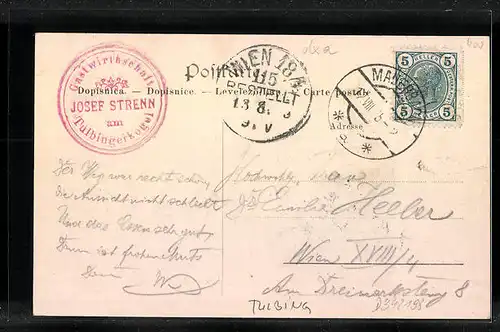 Gastwirthschaft
JOSEF STRENN
am
Tulbingerkogel
WIEN 18/1
115
BESTELLT
13 8
9 V
dxa
Postkarte
Dopisnica. — Dopisnice. — Levelezőlap. — Carte postale
Adresse
MAUERB
VIII
5 HELLER 5
5 5
Der Weg war recht schön,
Die Aussicht nicht schlecht
Und das Essen sehr gut,
Drum ist frohen Muts
Dein
Hochwohlgeb.
Emilie Heeber
Wien XVIII/4
Am Dreimarkstein 8
TULBING